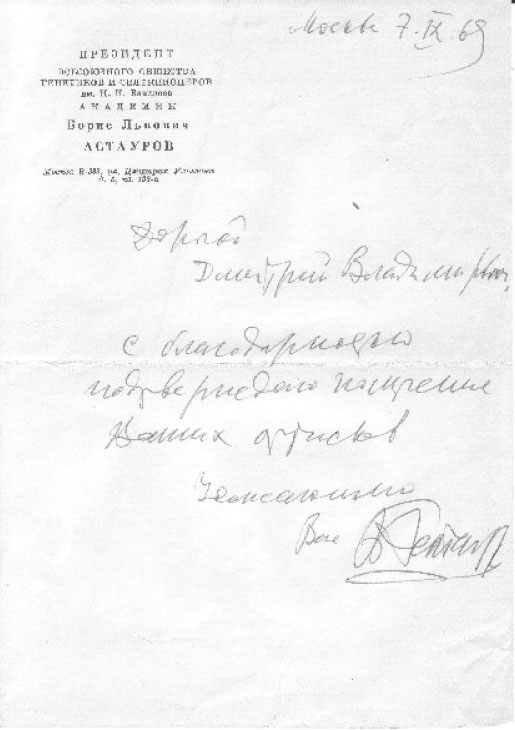 Москва 7.IX.69
ПРЕЗИДЕНТ
ВСЕСОЮЗНОГО ОБЩЕСТВА
ГЕНЕТИКОВ И СЕЛЕКЦИОНЕРОВ
им. Н. И. Вавилова
АКАДЕМИК
Борис Львович
АСТАУРОВ
Москва В-333, ул. Дмитрия Ульянова
Дорогой
Дмитрий Владимирович,
с благодарностью
подтверждаю получение
Ваших оттисков
Уважающий
Вас